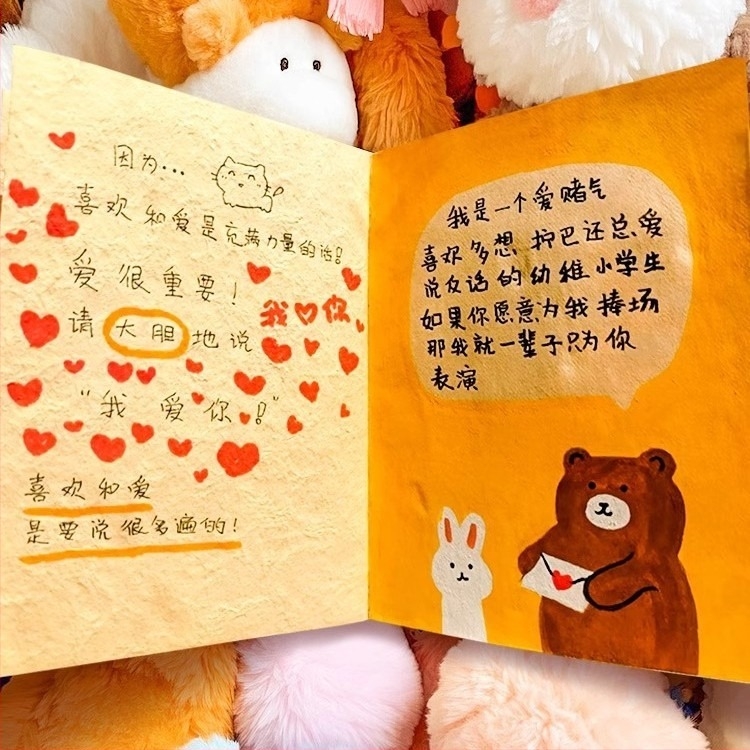 因为...
喜欢和爱是充满力量的话!
爱很重要!
我♡你
请大胆地说
"我爱你!"
喜欢和爱
是要说很多遍的!
我是一个爱赌气
喜欢多想 拧巴还总爱
说反话的幼稚小学生
如果你愿意为我捧场
那我就一辈子只为你
表演